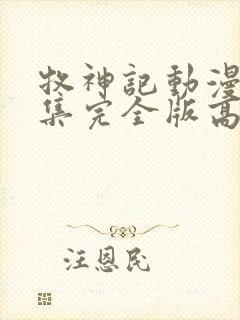 牧神記動漫
集完全版高
汪恩民